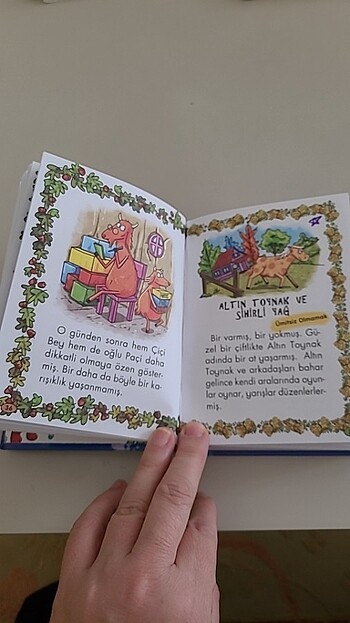 O günden sonra hem Çiçi
Bey hem de oğlu Paçi daha
dikkatli olmaya özen göster-
miş. Bir daha da böyle bir ka-
rışıklık yaşanmamış.
34
ALTIN TOYNAK VE
SİHİRLİ YAĞ
Ümitsiz Olmamak
Bir varmış, bir yokmuş. Gü-
zel bir çiftlikte Altın Toynak
adında bir at yaşarmış. Altın
Toynak ve arkadaşları bahar
gelince kendi aralarında oyun-
lar oynar, yarışlar düzenlerler-
miş.